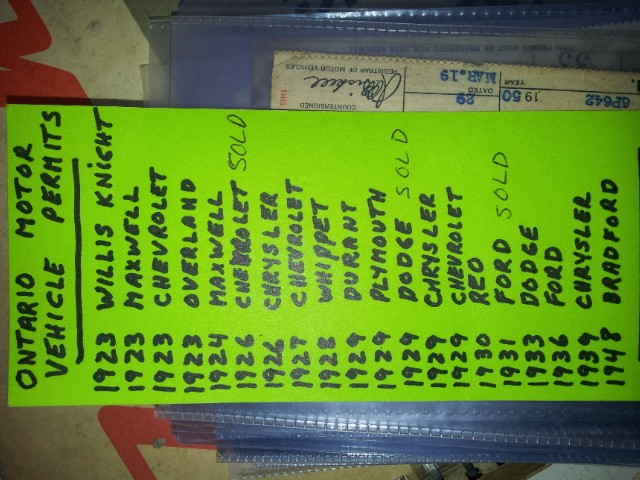 ONTARIO MOTOR
VEHICLE PERMITS
1923 WILLIS KNIGHT
1923 MAXWELL
1923 CHEVROLET
1923 OVERLAND
1924 MAXWELL
1926 CHEVROLET SOLD
1926 CHRYSLER
1927 CHEVROLET
1928 WHIPPET
1929 DURANT
1929 PLYMOUTH
1929 DODGE SOLD
1929 CHRYSLER
1929 CHEVROLET
1930 REO
1931 FORD SOLD
1933 DODGE
1936 FORD
1939 CHRYSLER
1948 BRADFORD
THIS
COUNTERSIGNED
REGISTRAR OF MOTOR VEHICLES
DATED
29 MAR.19
19 50 YEAR
6P642